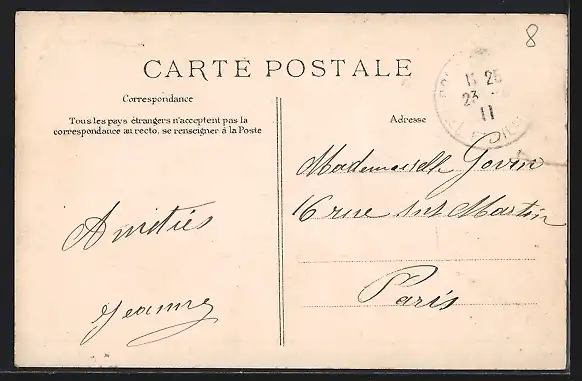 8
CARTE POSTALE
Correspondance
Tous les pays étrangers n'acceptent pas la
correspondance au recto, se renseigner à la Poste
Adresse
11 25
23
11
Mademoiselle Govin
16 rue St Martin
Paris
Amitiés
Jeanne